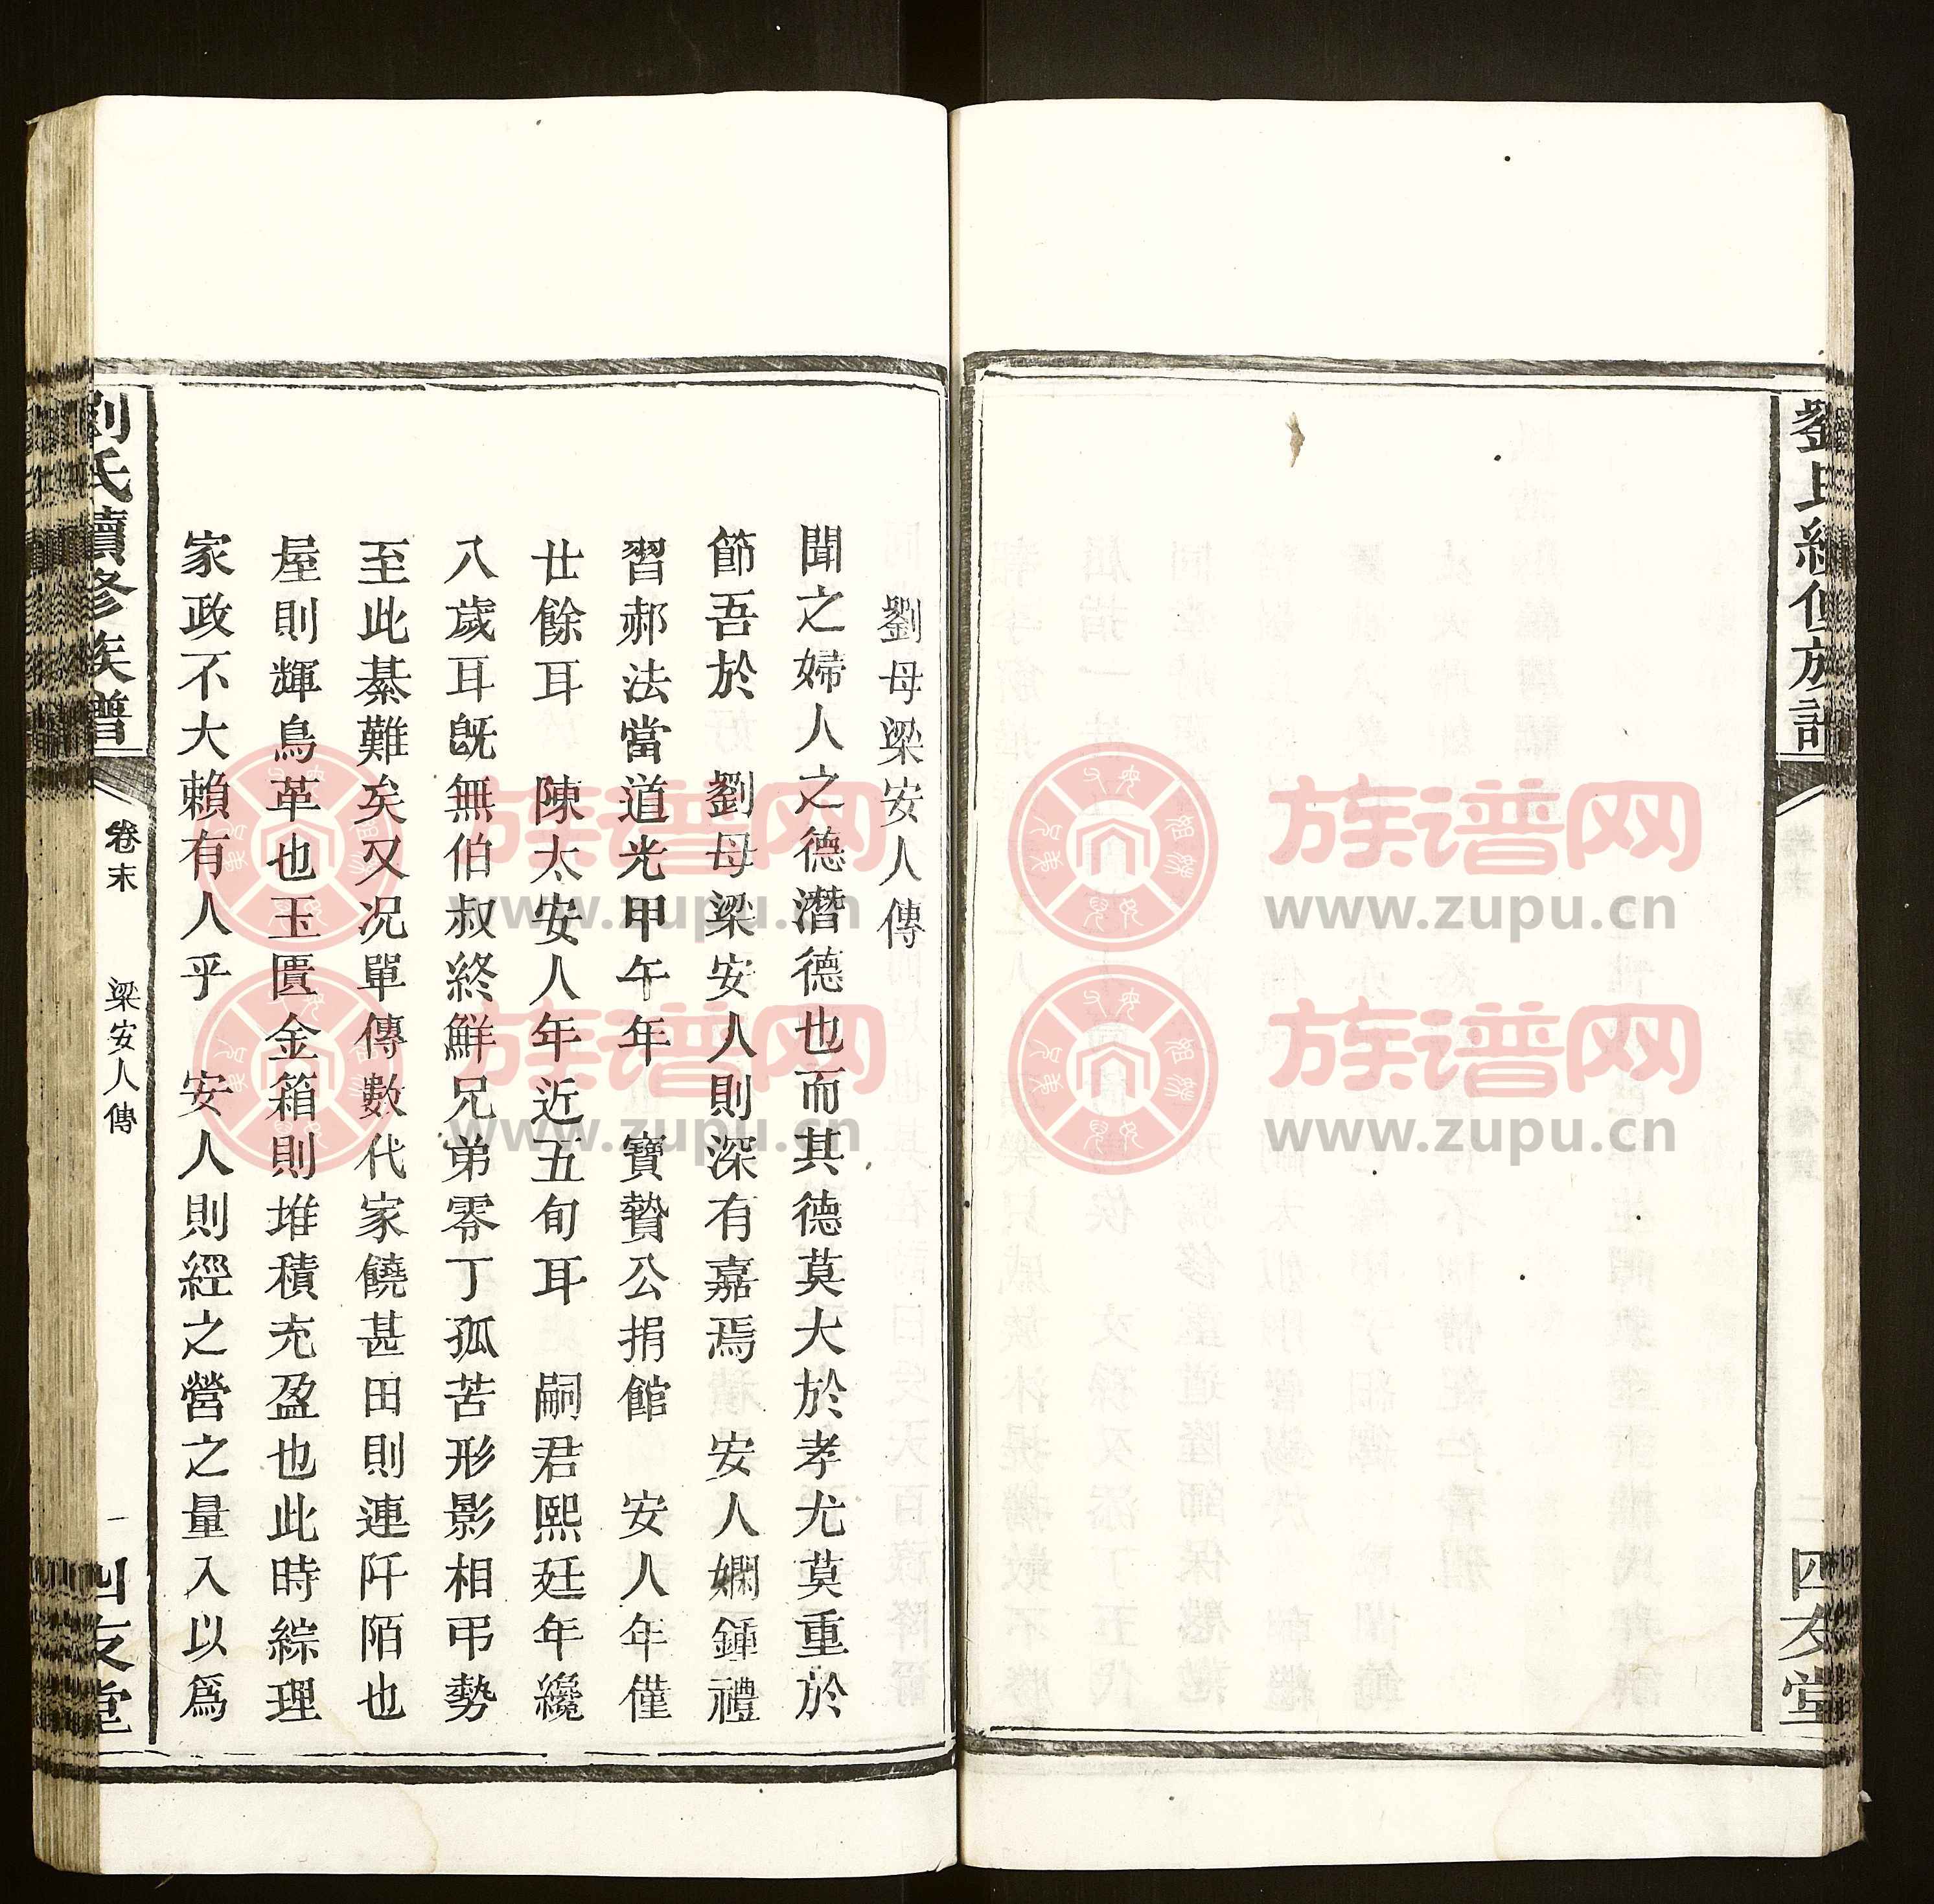 劉氏續修族譜
四友堂
劉母梁安人傳
聞之婦人之德潛德也而其德莫大於孝尤莫重於
節吾於　劉母梁安人則深有嘉焉　安人嫻鍾禮
習郝法當道光甲午年　寶贊公捐館　安人年僅
廿餘耳　陳太安人年近五旬耳　嗣君熙廷年纔
八歲耳旣無伯叔終鮮兄弟零丁孤苦形影相弔勢
至此綦難矣又况單傳數代家饒甚田則連阡陌也
屋則輝鳥革也玉匱金箱則堆積充盈也此時綜理
家政不大賴有人乎　安人則經之營之量入以爲
劉氏續修族譜
卷末
梁安人傳
一
四友堂
族谱网
www.zupu.cn
族谱网
www.zupu.cn
族谱网
www.zupu.cn
族谱网
www.zupu.cn